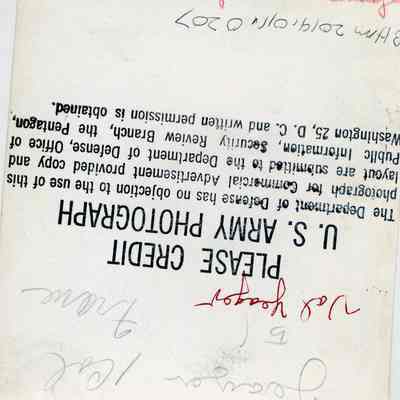 PLEASE CREDIT
U. S. ARMY PHOTOGRAPH
The Department of Defense has no objection to the use of this
photograph for Commercial Advertisement provided copy and
layout are submitted to the Department of Defense, Office of
Public Information, Security Review Branch, the Pentagon,
Washington 25, D. C. and written permission is obtained.
BHM 2014.01.0207
Val Yeager
Frame
5